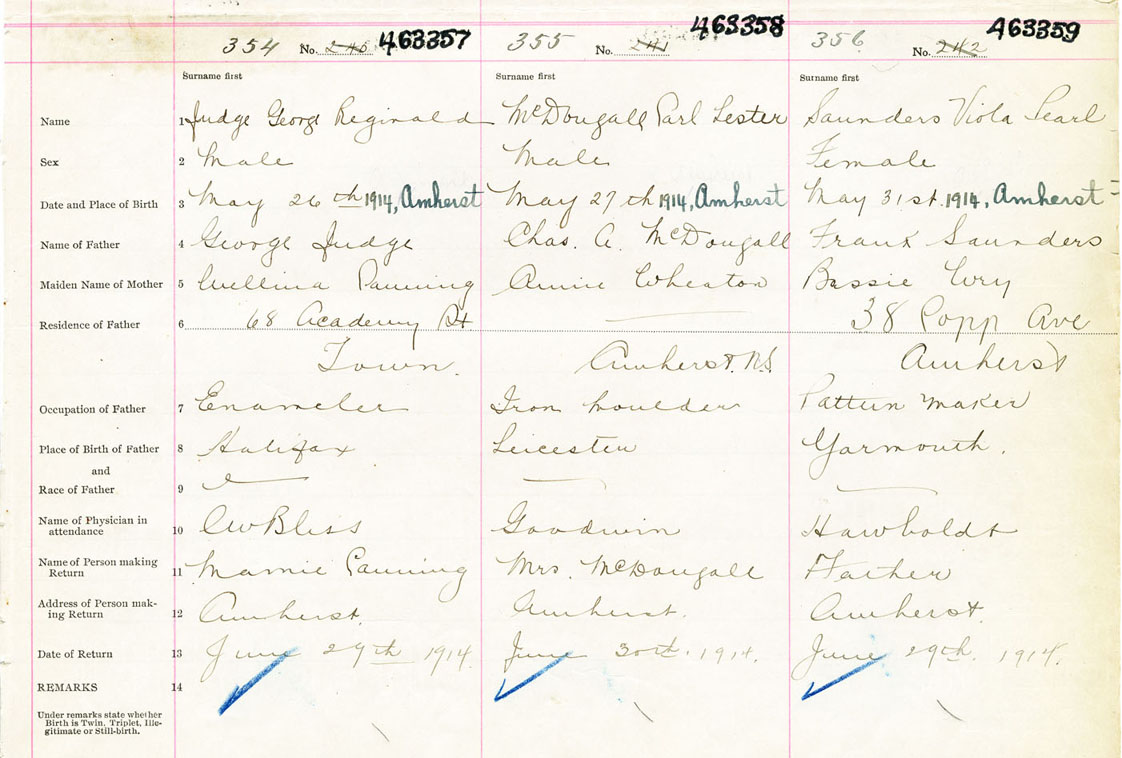 354 No. 240 463357 355 No. 241 463358 356 No. 242 463359
Surname first Surname first Surname first
Name 1 Judge George Reginald McDougall Carl Lester Saunders Viola Pearl
Sex 2 Male Male Female
Date and Place of Birth 3 May 26th 1914, Amherst May 27th 1914, Amherst May 31st. 1914, Amherst
Name of Father 4 George Judge Chas. A. McDougall Frank Saunders
Maiden Name of Mother 5 Annie Wheaton Bessie
Residence of Father 6 68 Academy St 38 Popp Ave
Town. Amherst. N.S. Amherst
Occupation of Father 7 Enameler Iron Moulder Pattern Maker
Place of Birth of Father 8 Halifax Leicester Yarmouth.
and
Race of Father 9
Name of Physician in
attendance 10 CW Bliss Goodwin Hawboldt
Name of Person making
Return 11 Mamie Mrs. McDougall Father
Address of Person mak-
ing Return 12 Amherst. Amherst. Amherst.
Date of Return 13 June 29th 1914. June 30th. 1914. June 29th. 1914.
REMARKS 14
Under remarks state whether
Birth is Twin, Triplet, Ille-
gitimate or Still-birth.